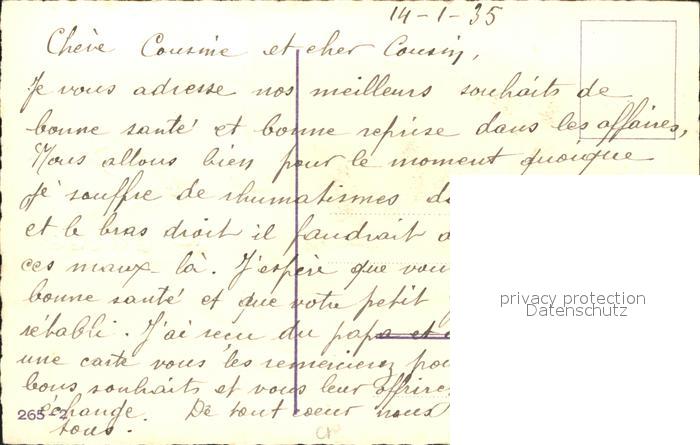 14-1-35
Chère Cousine et cher Cousin,
Je vous adresse nos meilleurs souhaits de
bonne santé et bonne reprise dans les affaires,
Nous allons bien pour le moment quoique
je souffre de rhumatismes da
et le bras droit il faudrait
ces maux-là. J'espère que vou
bonne santé et que votre petit
rétabli. J'ai reçu du papa et
une carte vous les remercierez pou
bons souhaits et vous leur offrirez
échange. De tout coeur nous
tous.
265-2
privacy protection
Datenschutz